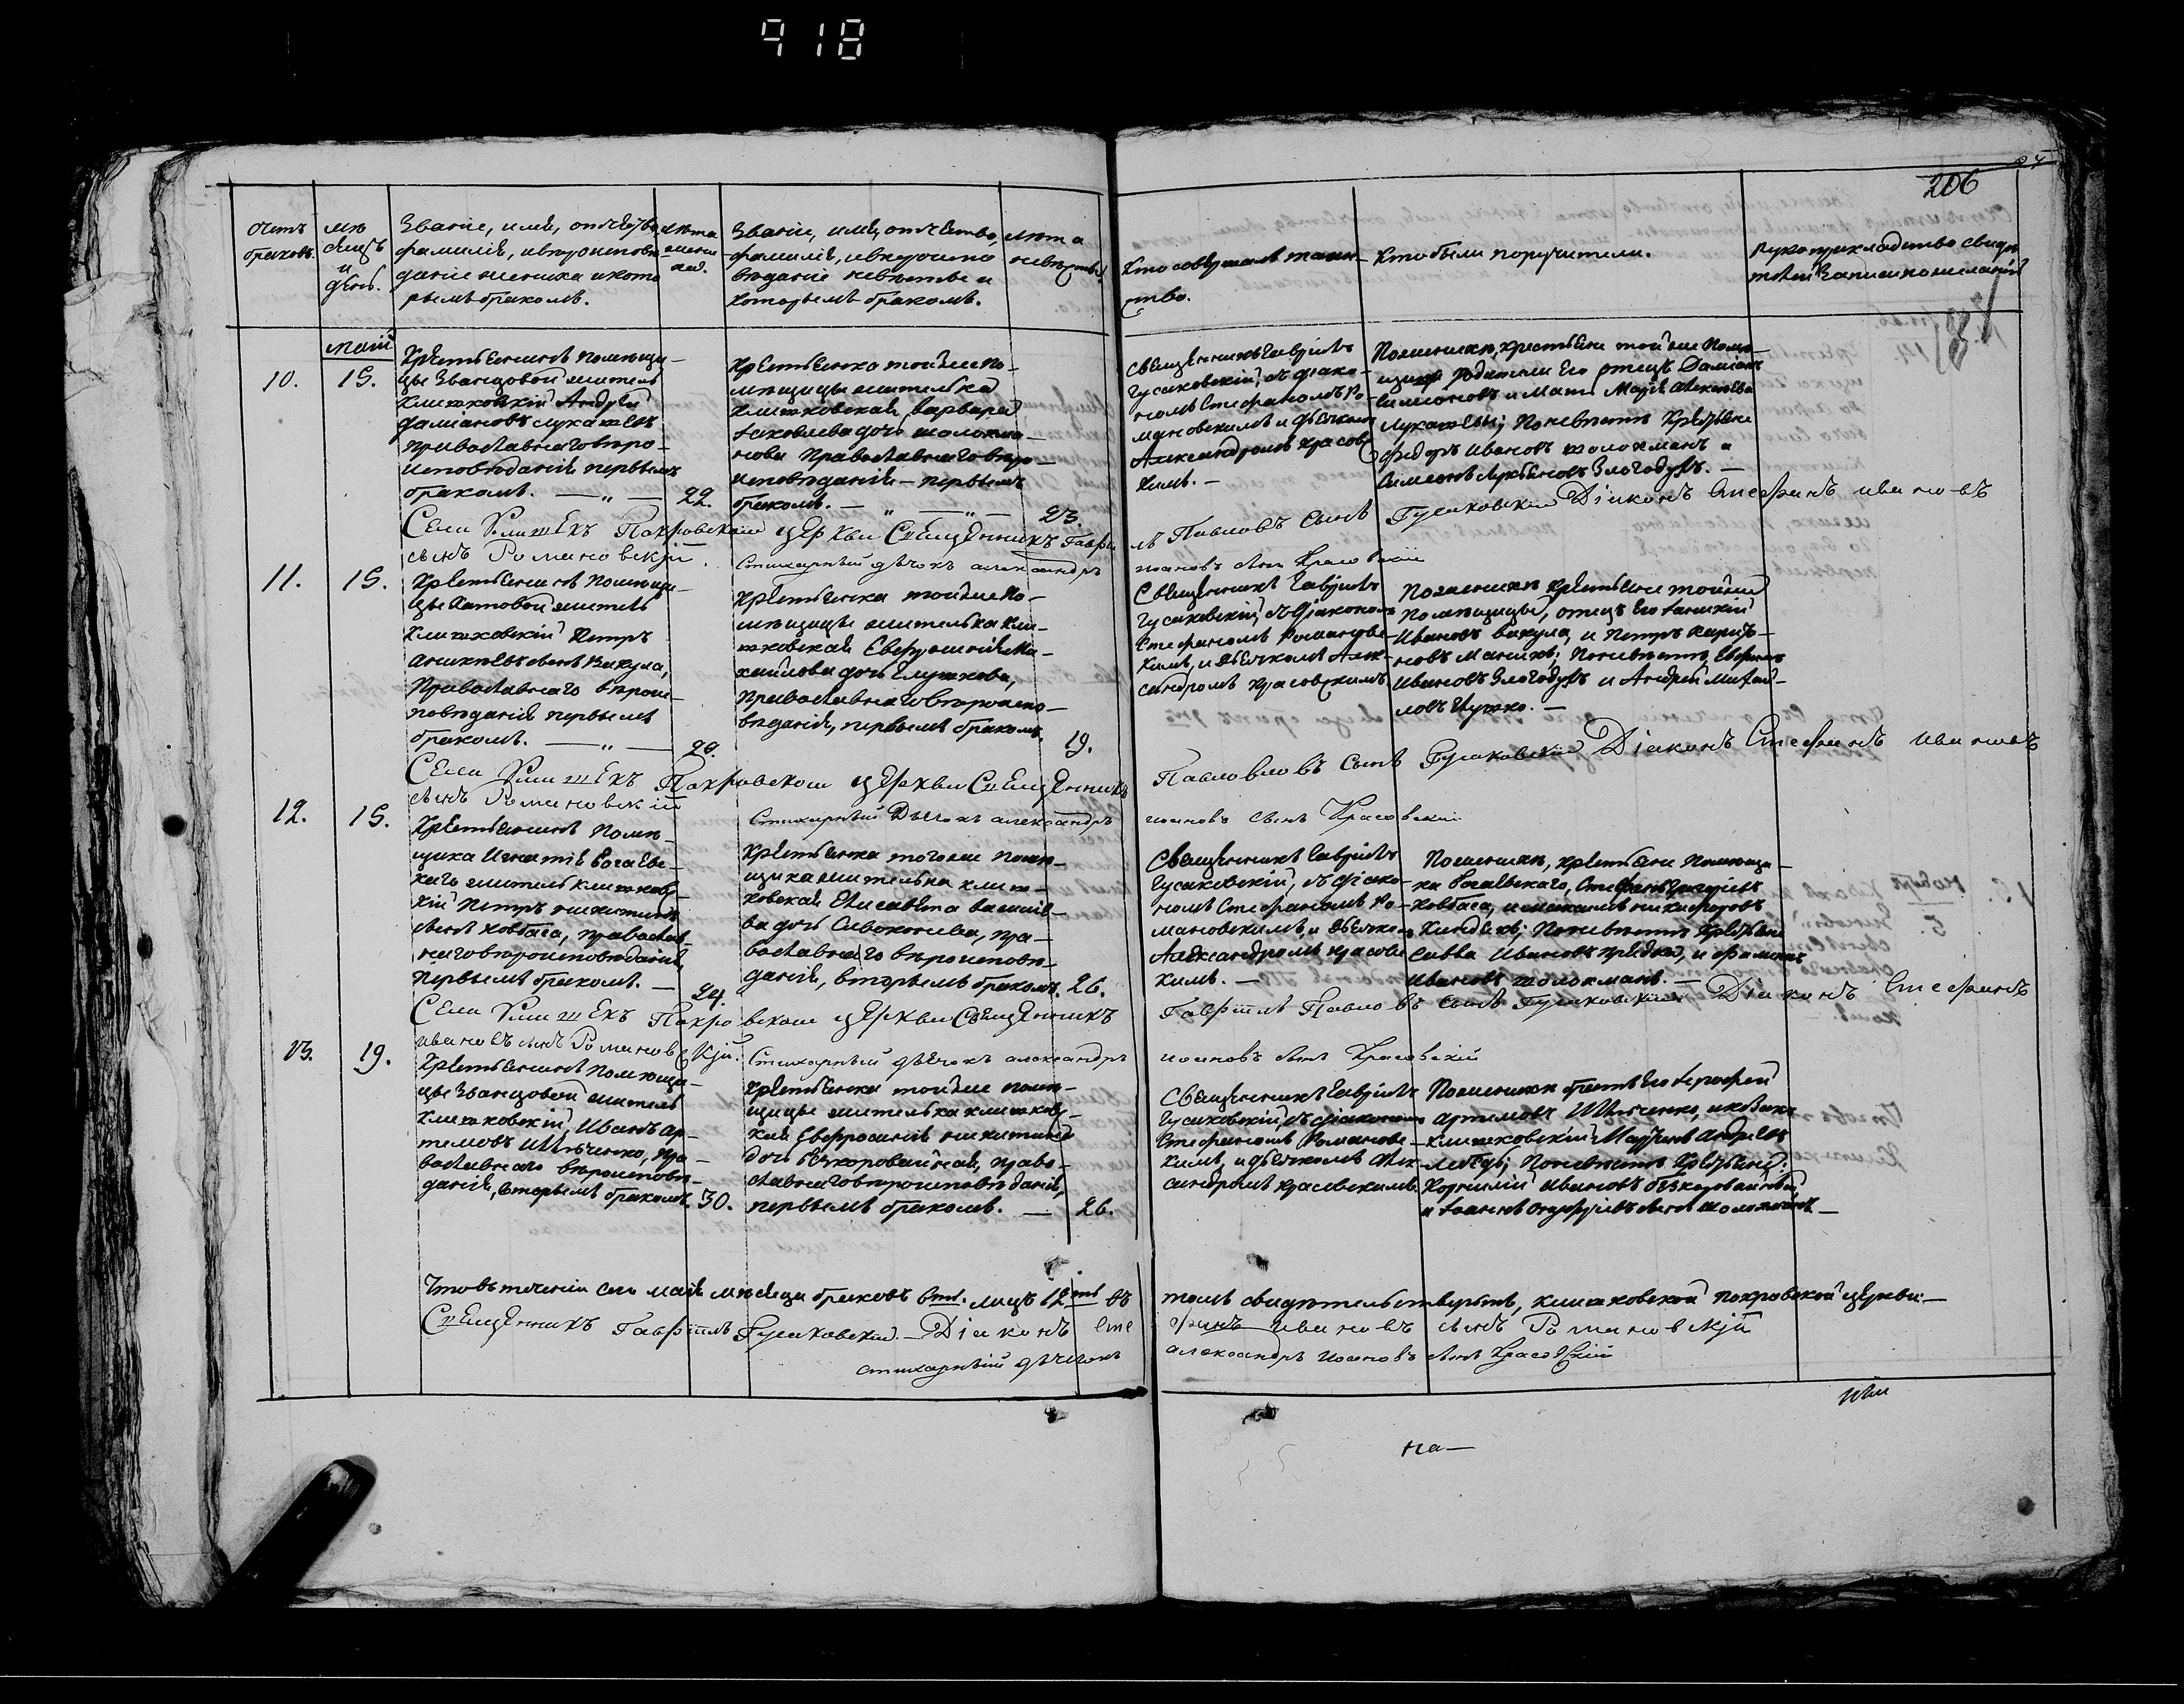 918
206
Счетъ браковъ.
Мѣсяцъ и день.
Званіе, имя, отчество,
фамилія, и вѣроисповѣ-
даніе жениха и кото-
рымъ бракомъ.
лѣта жениха.
Званіе, имя, отчество,
фамилія, и вѣроиспо-
вѣданіе невѣсты и
которымъ бракомъ.
лѣта невѣсты.
Кто совершалъ таин-
ство.
Кто были поручители.
Рукоприкладство свидѣ-
телей записи по желанію
Май
10. 15.
Крестьянинъ помѣщи-
цы Званцовой житель
Климковскій Андрей
Даміановъ Лукашевъ
Православнаго вѣро-
исповѣданія первымъ
бракомъ. — „ — 22.
Крестьянка тойже по-
мѣщицы жителька
Климковская Варвара
Іаковлева дочь Толокма-
нова Православнаго вѣро-
исповѣданія — первымъ
бракомъ. — „ — „ — 23.
Священникъ Гавріилъ
Гусаковскій, съ діако-
номъ Стефаномъ Ро-
мановскимъ и дьячкомъ
Александромъ Красовс-
кимъ. —
По женихѣ, крестьяне тойже помѣ-
щицы родители Его отецъ Даміанъ
Симеоновъ и Мать Марія Алексіева
Лукашевы; По невѣстѣ Крестьяне
Федоръ Ивановъ Толокманъ и
Симеонъ Лукьяновъ Злогодухъ. —
Села Климшекъ Покровской церкви Священникъ Гаврі
лъ Павловъ Сынъ Гусаковскій Діаконъ Стефанъ Ивановъ
сынъ Романовскій. Стихарный дьячокъ александръ
иоановъ сынъ Красовскій
11. 15.
Крестьянинъ помѣщи-
цы житель
Климковскій Петръ
сынъ Вакула,
Православнаго вѣроис-
повѣданія первымъ
бракомъ. — „ — 20.
Крестьянка тойже по-
мѣщицы жителька Кли-
мковская Евфросинія Ми-
хайлова дочь Глушкова,
Православнаго вѣроиспо-
вѣданія, первымъ бракомъ. 19.
Священникъ Гавріилъ
Гусаковскій, съ діакономъ
Стефаномъ Романовс-
кимъ, и дьячкомъ Алек-
сандромъ Красовскимъ.
По женихѣ Крестьяне тойже
помѣщицы, отецъ Его
Ивановъ Вакула, и Петръ
новъ; По невѣстѣ
Ивановъ Злогодухъ и Андрей Михай-
ловъ Глушко. —
Села Климшекъ Покровской церкви Священникъ
Павловъ Сынъ Гусаковскій Діаконъ Стефанъ Ивановъ
сынъ Романовскій Стихарный Дьячокъ александръ
иоановъ сынъ Красовскій
12. 15.
Крестьянинъ помѣ-
щика Игнатія Богаевс-
каго житель Климковс-
кій Петръ Никитинъ
сынъ Ковбаса, православ-
наго вѣроисповѣданія,
первымъ бракомъ. — 24.
Крестьянка тогоже помѣ-
щика жителька Клим-
ковская Елисавета Василіе-
ва дочь Сивоконева, пра-
вославнаго вѣроисповѣ-
данія, вторымъ бракомъ. 26.
Священникъ Гавріилъ
Гусаковскій, съ діако-
номъ Стефаномъ Ро-
мановскимъ, и дьячкомъ
Александромъ Красовс-
кимъ. —
По женихѣ, крестьяне помѣщи-
ка Богаевскаго, Стефанъ Григоріевъ
Ковбаса, и Никифоровъ
По невѣстѣ Крестьяне
Савва Ивановъ и
Ивановъ Толокманъ. —
Села Климшекъ Покровской церкви Священникъ
Гавріилъ Павловъ Сынъ Гусаковскій Діаконъ Стефанъ
Ивановъ сынъ Романовскій. Стихарный дьячокъ александръ
иоановъ сынъ Красовскій
13. 19.
Крестьянинъ помѣщи-
цы Званцовой житель
Климковскій, Иванъ Ар-
темовъ Ильченко, пра-
вославнаго вѣроисповѣ-
данія, вторымъ бракомъ. 30.
Крестьянка тойже помѣ-
щицы жителька Климковс-
кая Евфросинія Никитина
дочь Безкоровайная, право-
славнаго вѣроисповѣданія,
первымъ бракомъ. — 26.
Священникъ Гавріилъ
Гусаковскій, съ діакономъ
Стефаномъ Романовс-
кимъ, и дьячкомъ Алек-
сандромъ Красовскимъ.
По женихѣ братъ Его Іерофей
Артемовъ Ильченко, и козакъ
Климковскій Мартинъ Андреевъ
Лебедь; По невѣстѣ Крестьяне:
Корнилій Ивановъ Безкоровайный,
и Іоаннъ Онуфріевъ сынъ Толокманъ. —
Что въ теченіи сего мая мѣсяца браковъ 6ть. лицъ 12ть въ
томъ свидѣтельствуютъ, Климковской Покровской церкви: —
Священникъ Гавріилъ Гусаковскій. — Діаконъ Сте
фанъ Ивановъ сынъ Романовскій
стихарный дьячокъ
александръ иоановъ сынъ Красовскій
на —